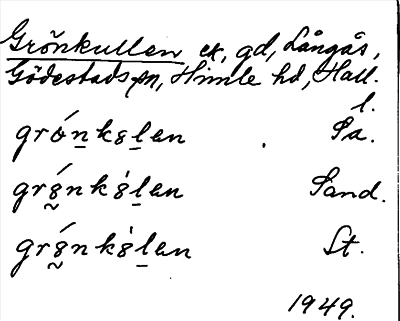 Grönkullen ck, gd, Långås,
Gödestads sn, Himle hd, Hall.
l.
grónkslan Sa.
gr´8nk8̀lan Sand.
gr´8nk8̀lan St.
1949.